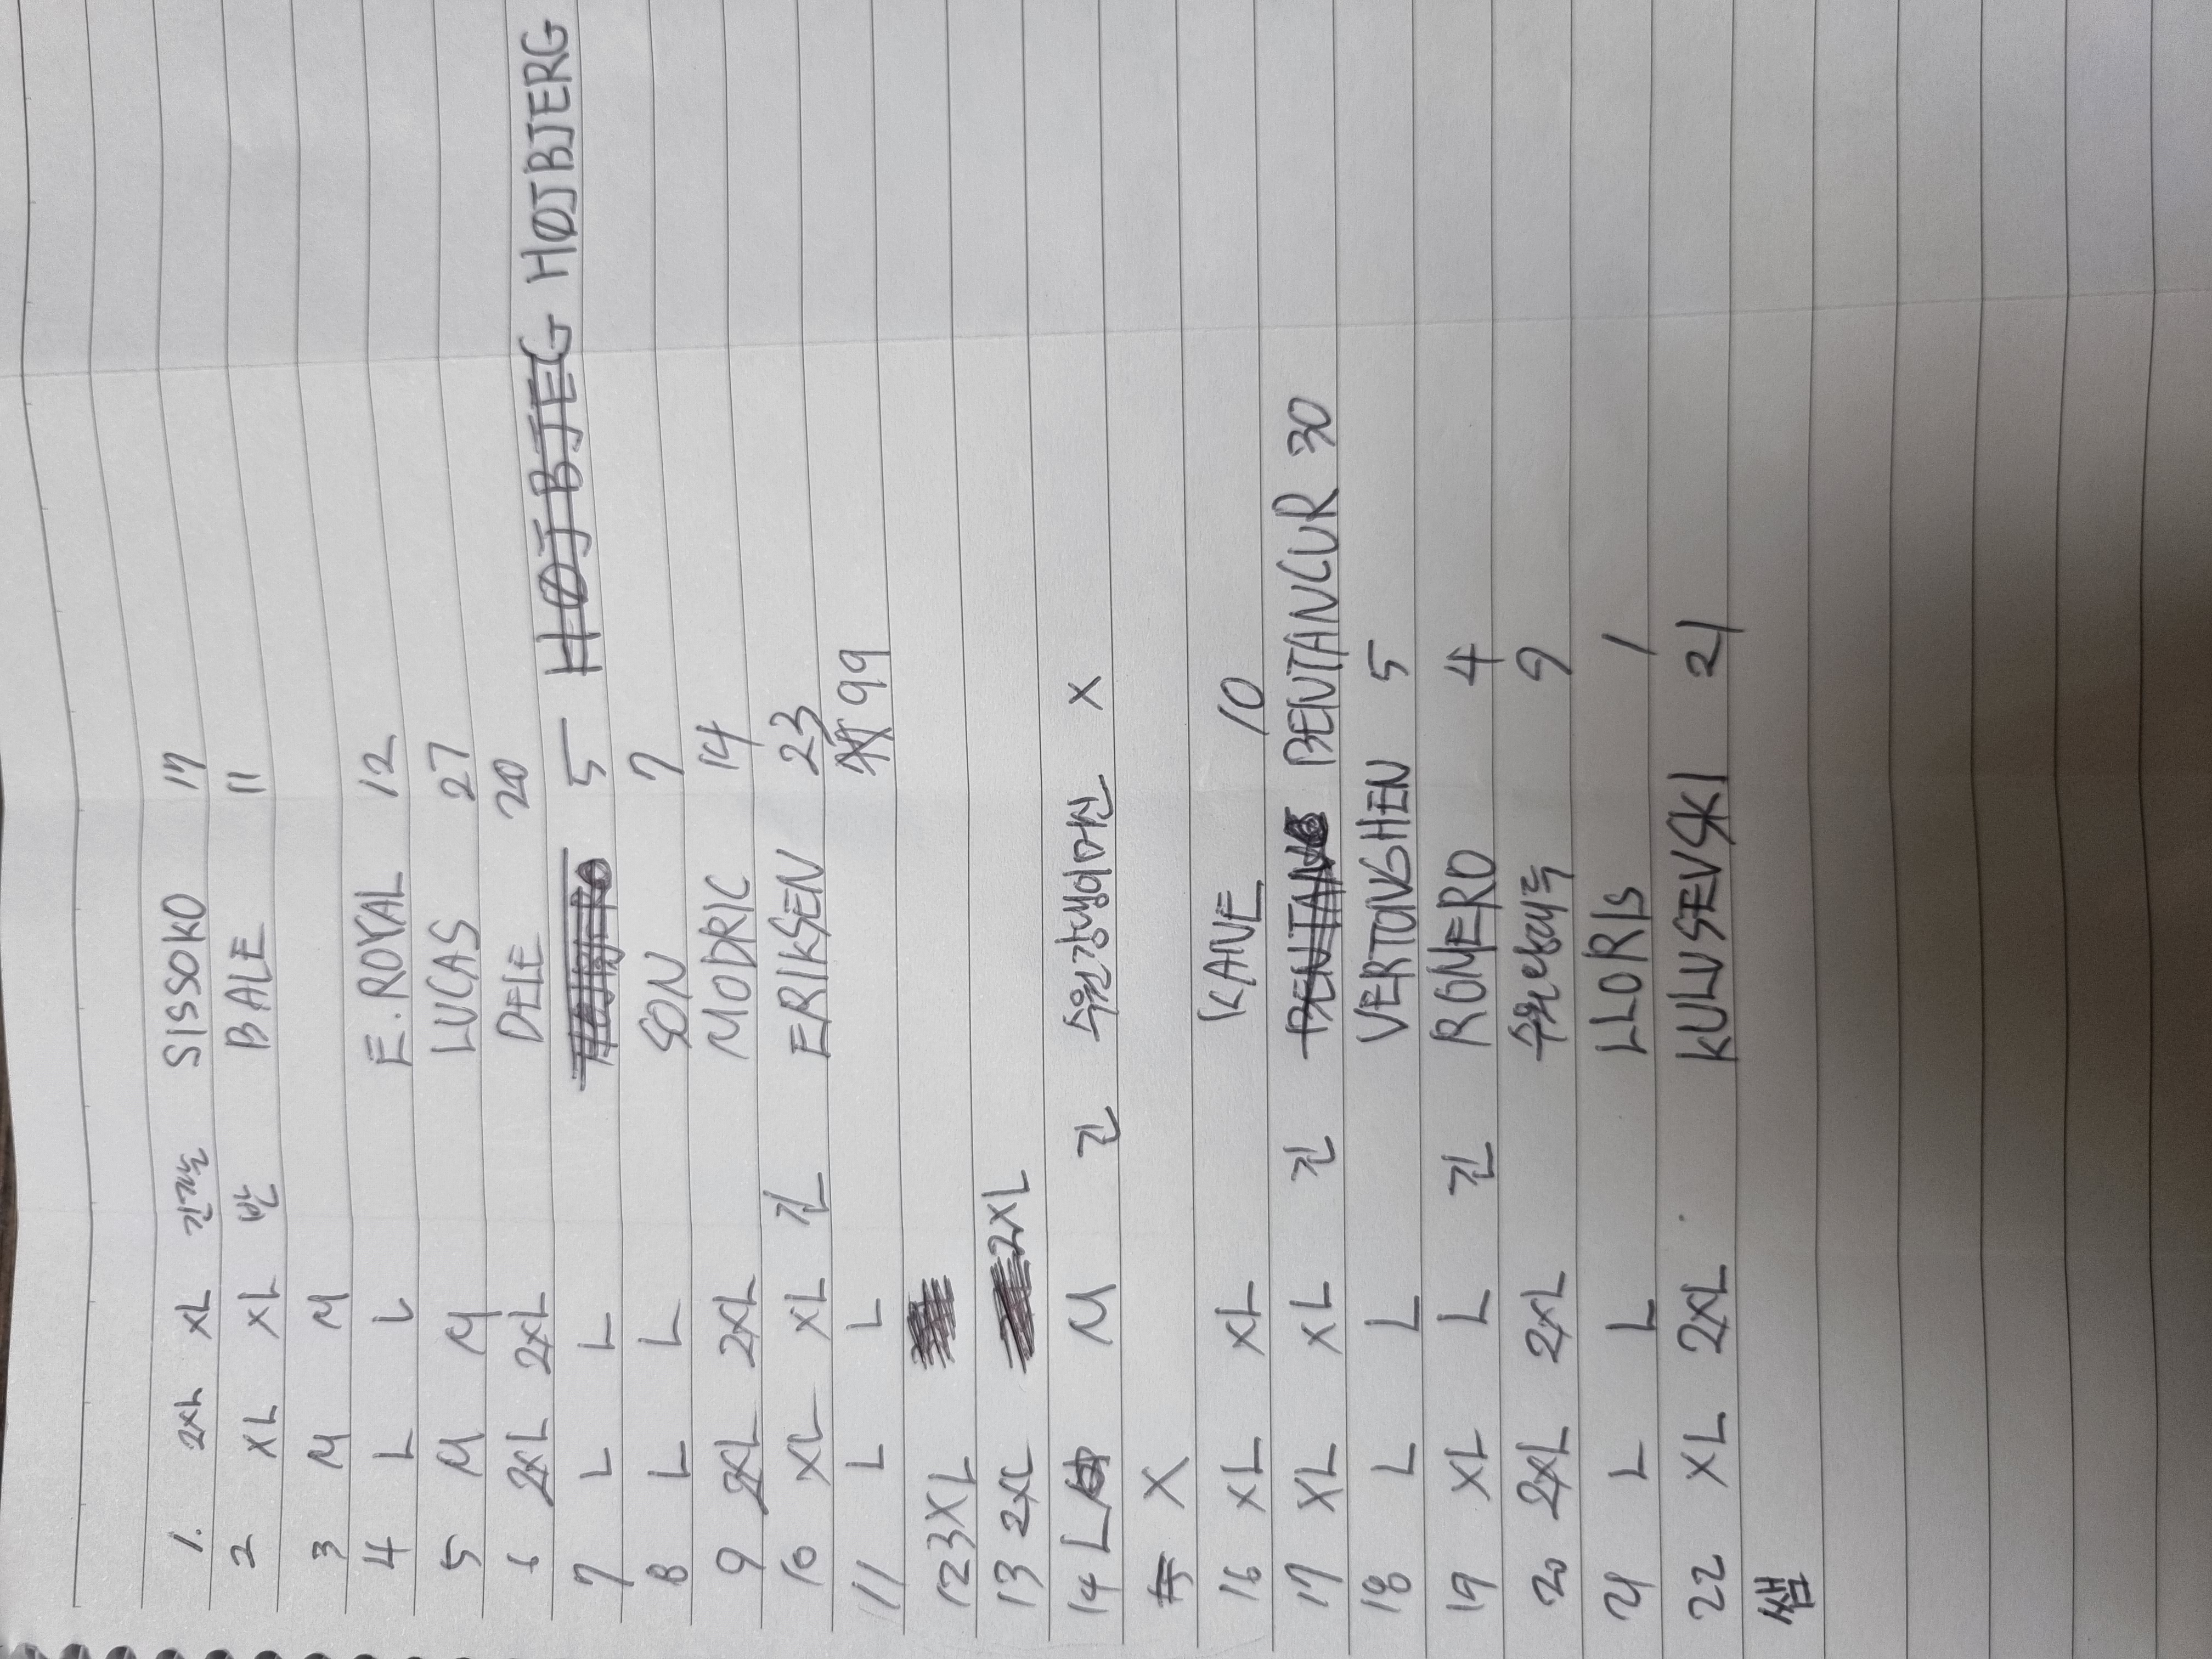 1. 2XL XL 긴팔 SISSOKO 17
2 XL XL 반 BALE 11
3 M M
4 L L E.ROYAL 12
5 M M LUCAS 27
6 2XL 2XL DELE 20
7 L L 5 HØJBJEG HØJBJERG
8 L L SON 7
9 2XL 2XL MODRIC 14
10 XL XL 긴 ERIKSEN 23
11 L L 99
12 3XL
13 2XL 2XL
14 L M 긴 수원강생이머신 X
15 X
16 XL XL KANE 10
17 XL XL 긴 BENTAN BENTANCUR 30
18 L L VERTONGHEN 5
19 XL L 긴 ROMERO 4
20 2XL 2XL 9
21 L L LLORIS 1
22 XL 2XL KULUSEVSKI 21
쌤